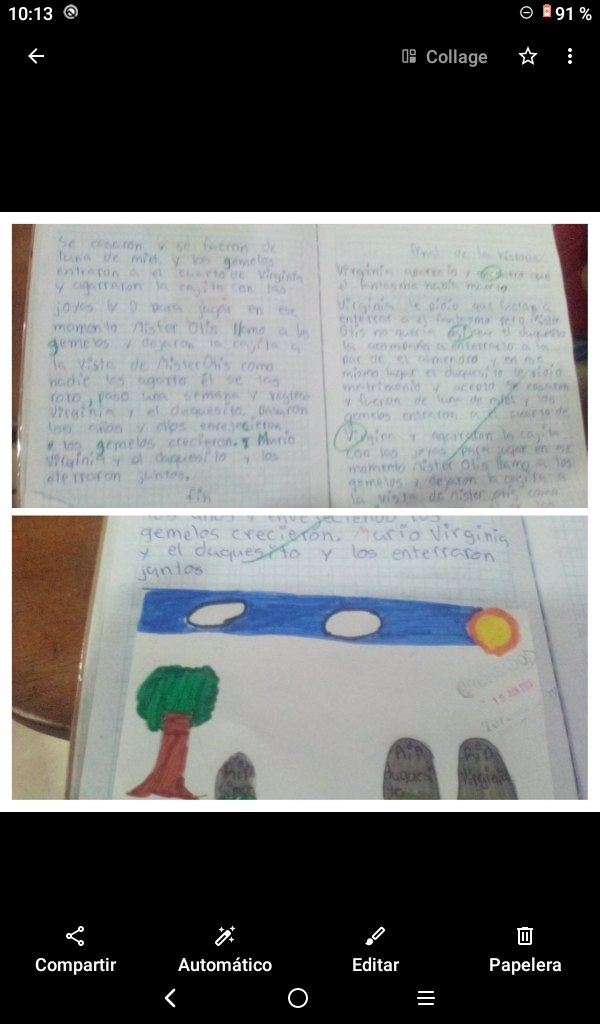 10:13
91 %
Collage
se casaron y se fueron de
luna de miel y los gemelos
entraron a el cuarto de Virginia
y agarraron la cajita con las
joyas para jugar en ese
momento Mister Otis llamo a los
gemelos y dejaron la cajita a
la vista de Mister Otis como
nadie las agarro él se las
robo, paso una semana y regreso
Virginia y el duquesito, pasaron
los años y ellos envejecieron,
los gemelos crecieron. Mario
Virginia y el duquesito y los
enterraron juntos.
fin
final de la historia
Virginia aparecio y que
el fantasma habia muerto
Virginia le pidio que fueran a
enterrar a el fantasma pero Mister
Otis no queria que el duquesito
la acompaño a enterrarlo a la
par de el almendro y en ese
mismo lugar el duquesito le pidio
matrimonio y acepto se casaron
y fueron de luna de miel y los
gemelos entraron a el cuarto de
Virginia y agarraron la cajita
con las joyas para jugar en ese
momento Mister Otis llamo a los
gemelos y dejaron la cajita a
la vista de Mister Otis como
los años y envejeciendo los
gemelos crecieron. Mario Virginia
y el duquesito y los enterraron
juntos
REVISADO
RiP
RiP
duquesi
to
RiP
Virginia
Compartir
Automático
Editar
Papelera